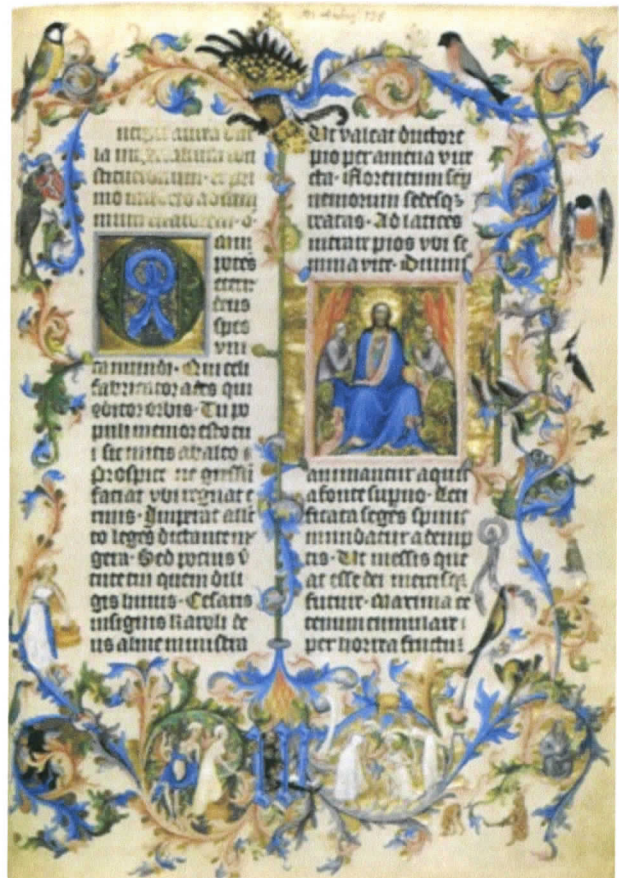 mo
omi
potes
eterne
deus
spes
uni
ca mundi · Qui celi
fabricator ades qui
ꝯditor orbis · Tu po
puli memor esto tu
i sic mitis ab alto
Prospice ne gressū
faciat ubi regnat e
rinis · Imperat alle
cto leges dictante me
gera · Sed pocius v
tute tui quem dili
gis huius · Cesaris
insignis Karoli de
us alme ministra
Ut valeat ductore
pio per amena vire
cta · Florentum
nemorum sedesqꝫ
Ad latices
intrare pios ubi se
mina vite · Divinis
animantur aquis
a fonte supno · Leti
ficata seges spinis
mundatur ademp
tis · Ut messis que
at esse dei mercisqꝫ
future · Maxima ce
tenum cumulare
per horrea fructus